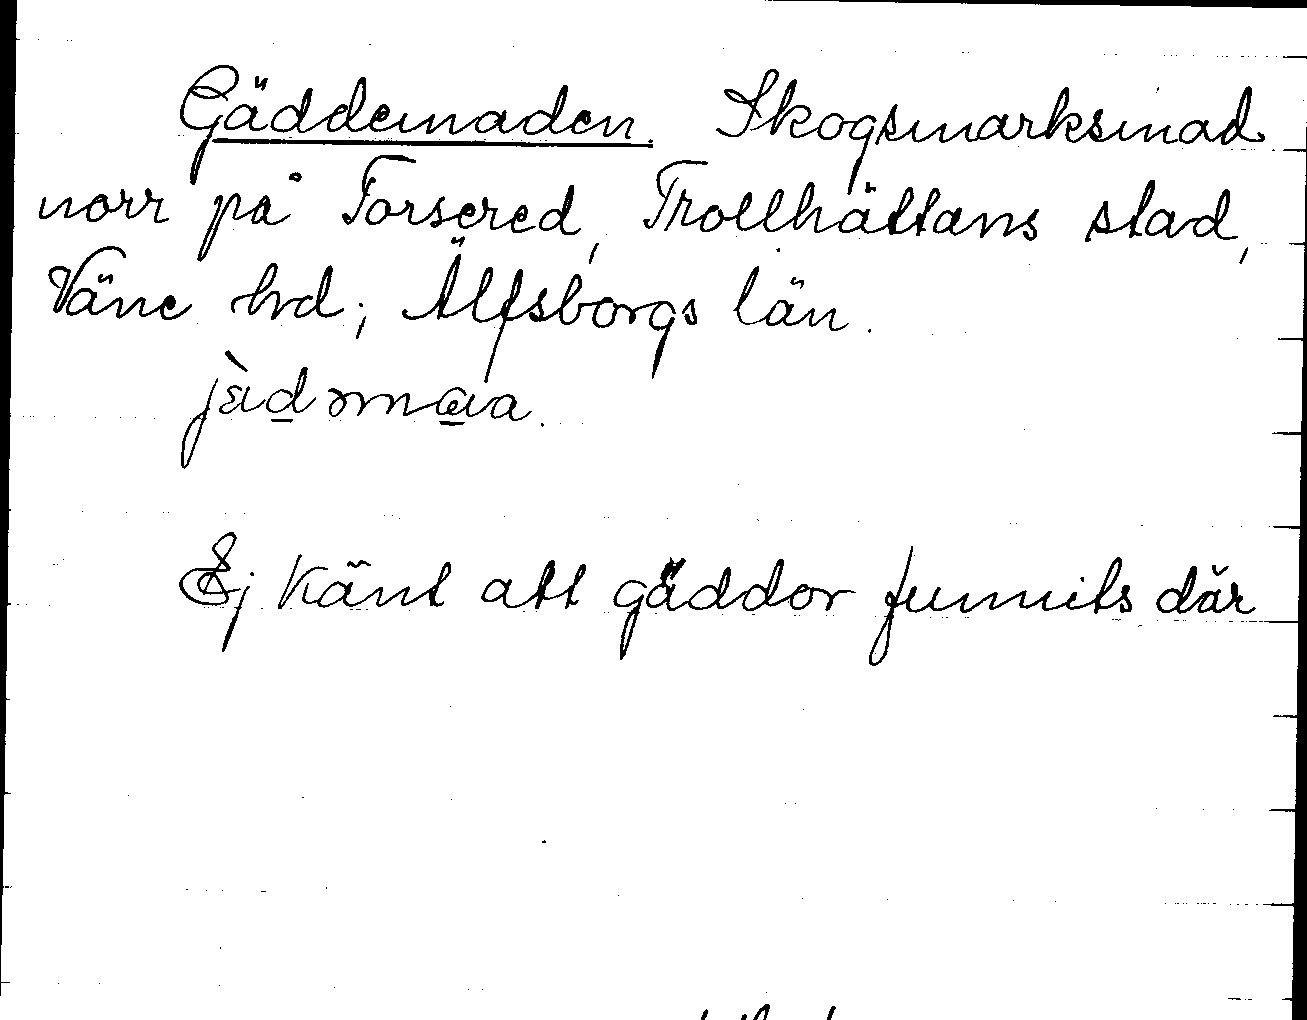 Gäddemaden. Skogsmarksmad
norr på Forsered, Trollhättans stad,
Väne hd; Älfsborgs län.
Ej känt att gäddor funnits där